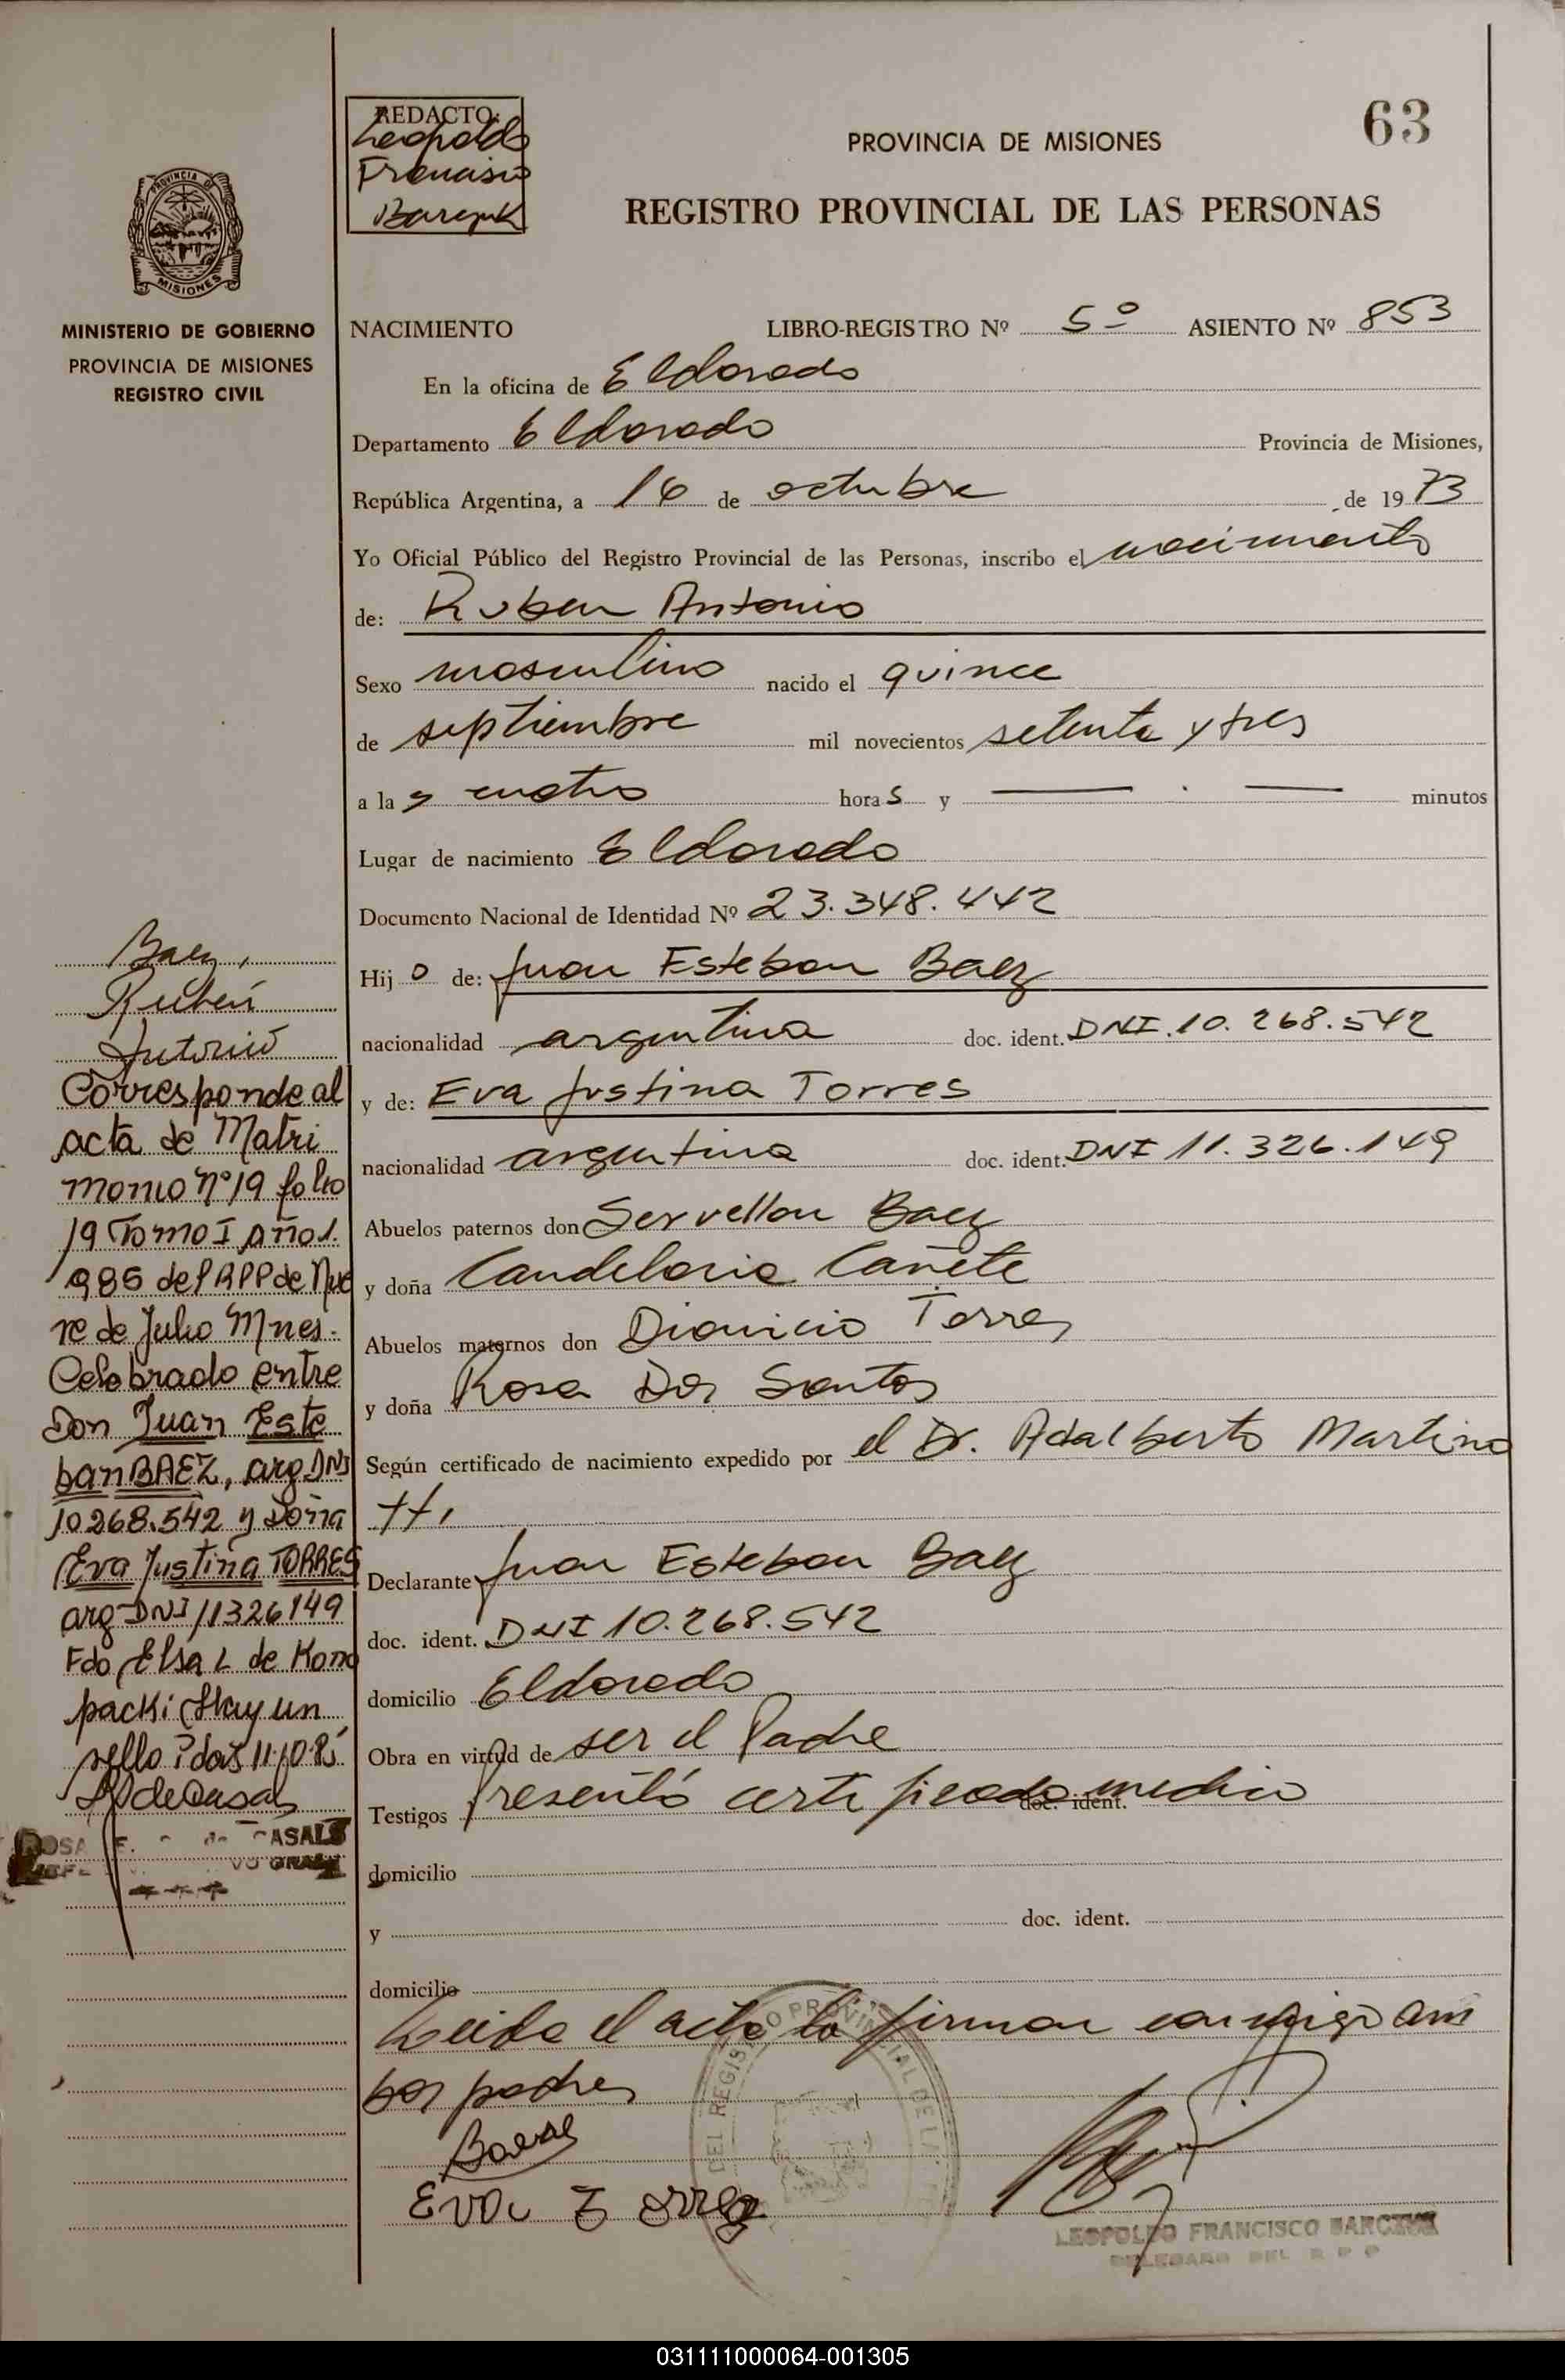 REDACTO:
Leopoldo
Francisco
Barczuk
63
PROVINCIA DE MISIONES
REGISTRO PROVINCIAL DE LAS PERSONAS
PROVINCIA DE
MISIONES
MINISTERIO DE GOBIERNO
PROVINCIA DE MISIONES
REGISTRO CIVIL
NACIMIENTO LIBRO-REGISTRO Nº 5º ASIENTO Nº 853
En la oficina de Eldorado
Departamento Eldorado Provincia de Misiones,
República Argentina, a 16 de octubre de 1973
Yo Oficial Público del Registro Provincial de las Personas, inscribo el nacimiento
de: Ruben Antonio
Sexo masculino nacido el quince
de septiembre mil novecientos setenta y tres
a la s cuatro hora s y — . — minutos
Lugar de nacimiento Eldorado
Documento Nacional de Identidad Nº 23.348.442
Hij o de: Juan Esteban Baez
nacionalidad argentina doc. ident. DNI. 10.268.542
y de: Eva Justina Torres
nacionalidad argentina doc. ident. DNI 11.326.149
Abuelos paternos don Servellon Baez
y doña Candelaria Cañete
Abuelos maternos don Dionicio Torres
y doña Rosa Dos Santos
Según certificado de nacimiento expedido por el Dr. Adalberto Martino
tti
Declarante Juan Esteban Baez
doc. ident. DNI 10.268.542
domicilio Eldorado
Obra en virtud de ser el Padre
Testigos Presentó certificado medico doc. ident.
domicilio
y doc. ident.
domicilio
Leida el acta la firman conmigo am
bos padres
Baez
Eva T orrez
LEOPOLDO FRANCISCO BARCZUK
DELEGADO DEL R P P
DEL REGISTRO PROVINCIAL DE LA
Baez,
Rubén
Antonio
Corresponde al
acta de Matri
monio Nº 19 folio
19 Tomo I Año 1.
985 del RPP de Nue
ve de Julio Mnes.
Celebrado entre
Don Juan Este
ban BAEZ, arg DNI
10268.542 y Doña
Eva Justina TORRES
arg DNI 11326149
Fdo Elsa L de Kono
packi Hay un
sello
de Casals
ROSA E. de CASALS
031111000064-001305